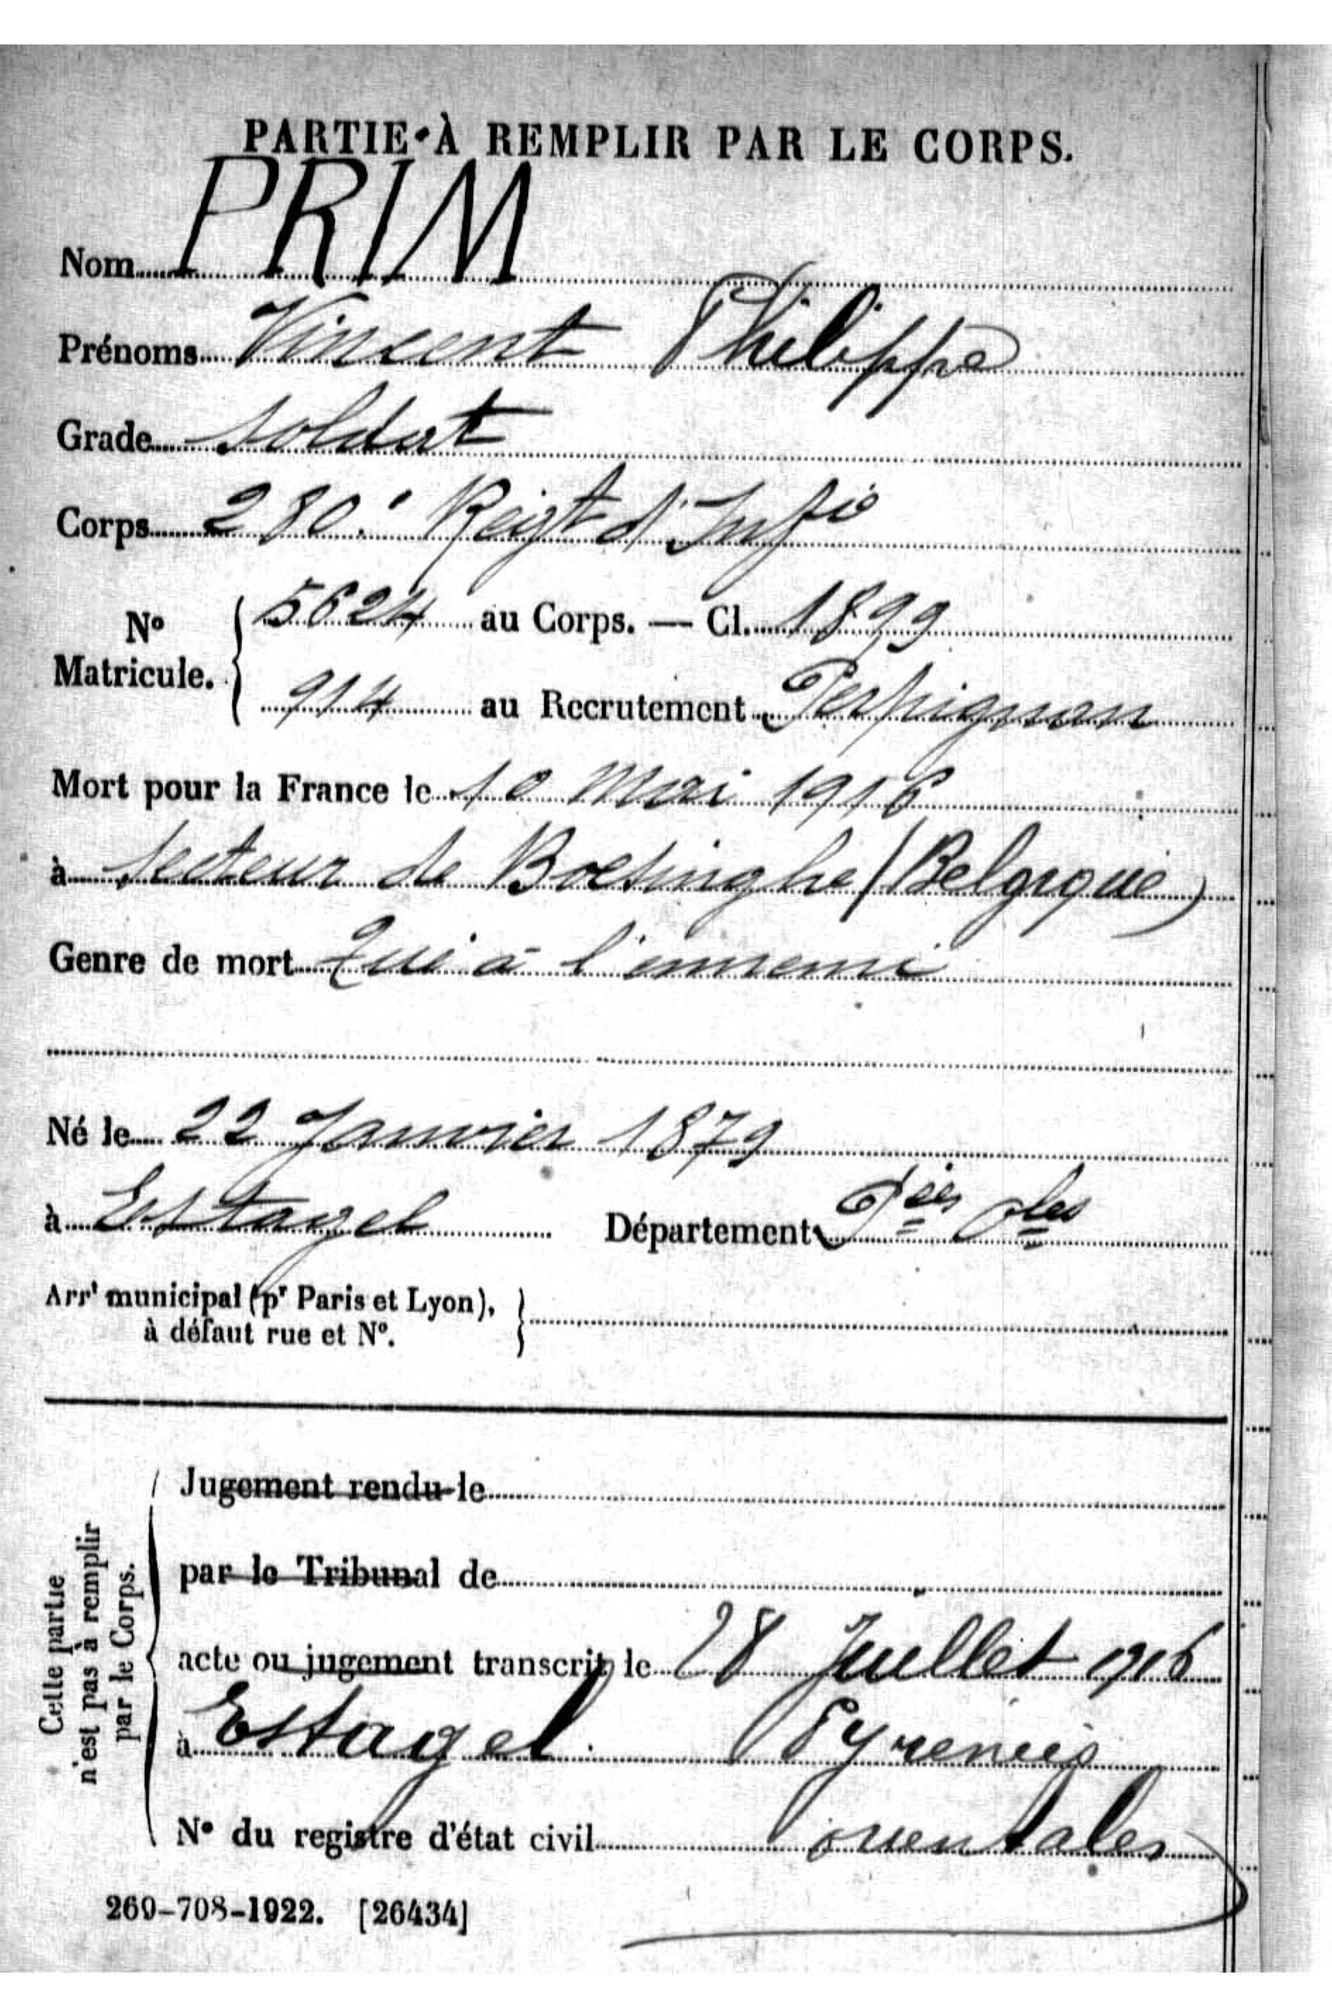 PARTIE À REMPLIR PAR LE CORPS.
Nom PRIM
Prénoms Vincent Philippe
Grade soldat
Corps 280e Regt d'Infie
No Matricule. { 5624 au Corps. — Cl. 1899
914 au Recrutement Perpignan
Mort pour la France le 10 Mai 1916
à secteur de Boesinghe (Belgique)
Genre de mort Tué à l'ennemi
Né le 22 Janvier 1879
à Estagel Département Pées Oles
Arrt municipal (pr Paris et Lyon), à défaut rue et No. }
Cette partie n'est pas à remplir par le Corps.
Jugement rendu le
par le Tribunal de
acte ou jugement transcrit le 28 Juillet 1916
à Estagel (Pyrenées
No du registre d'état civil orientales)
269-708-1922. [26434]